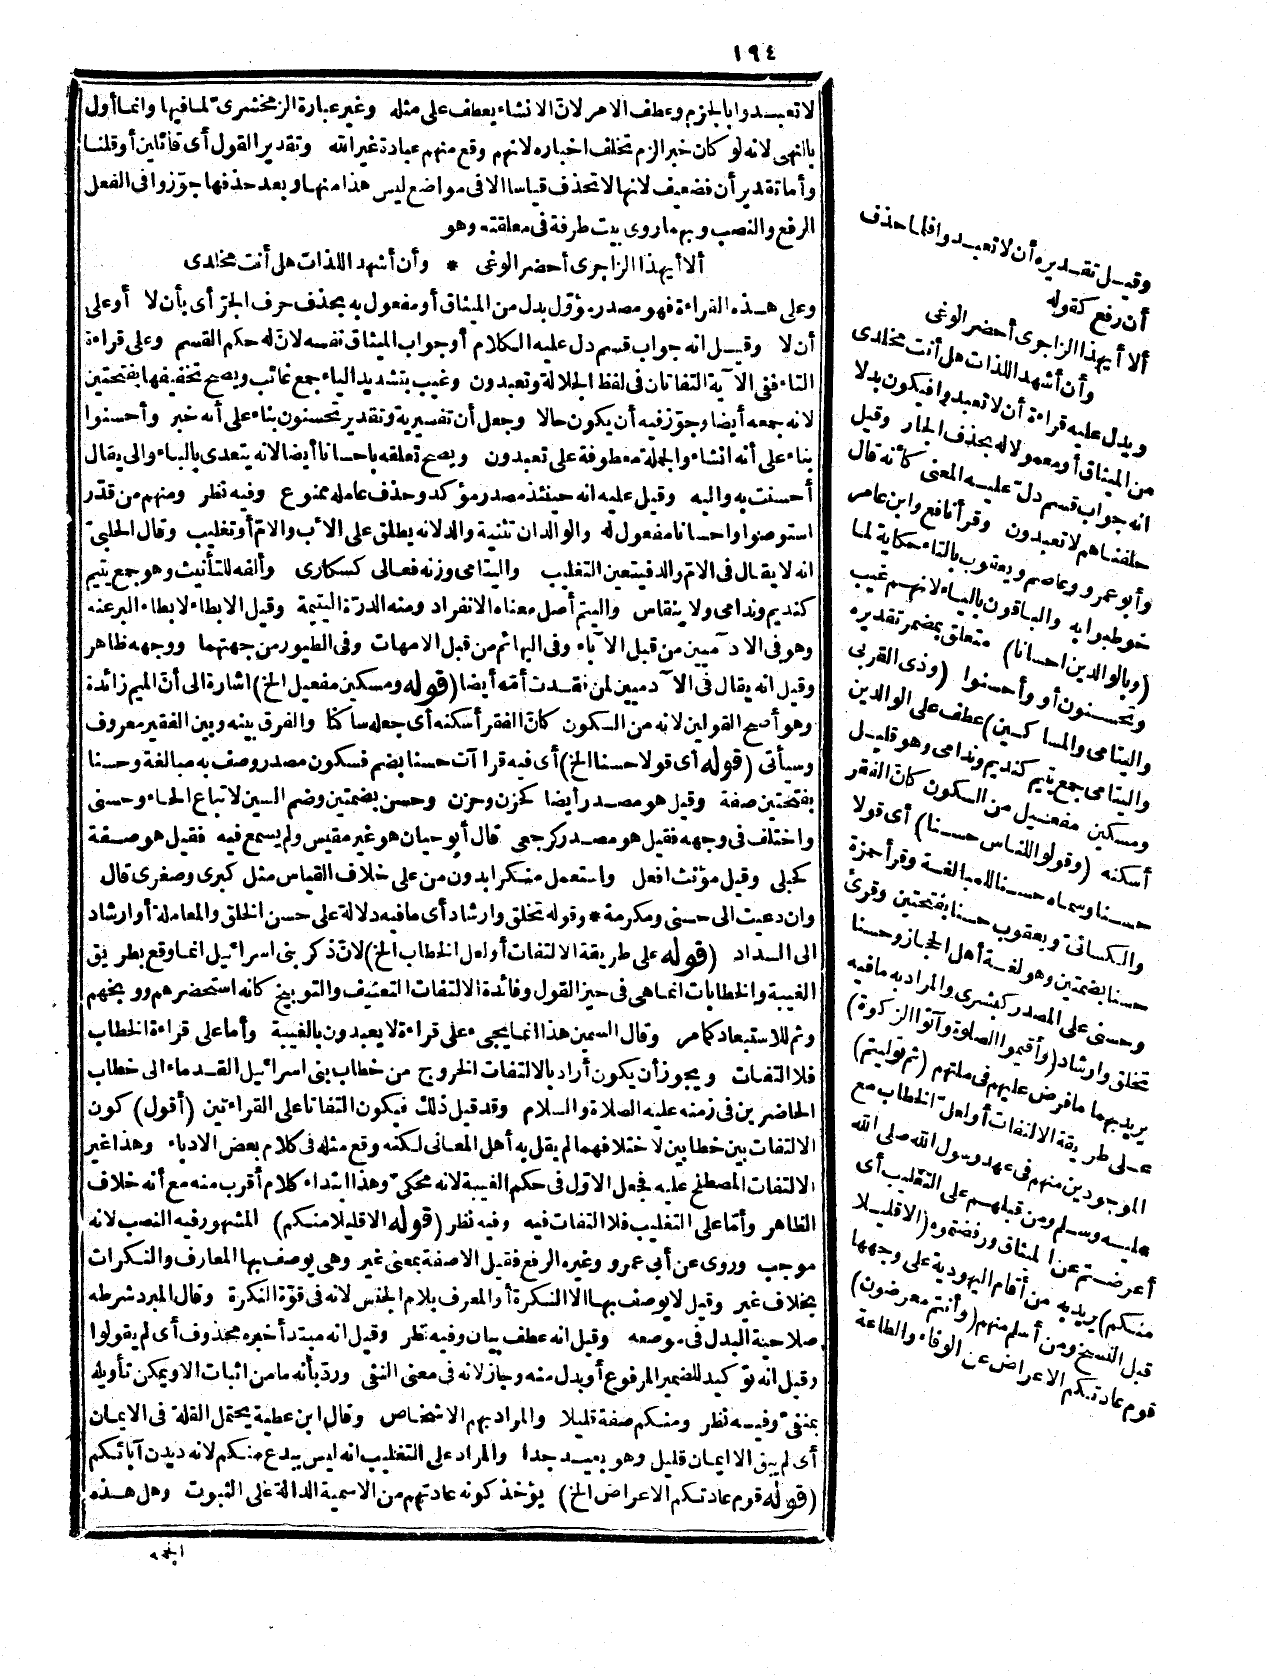 ١٩٤
لا تعبدوا بالجزم وعطف الامر لان الانشاء يعطف على مثله وغير عبارة الزمخشرى لما فيها وانما أول
بالنهى لانه لو كان خبرا لزم تخلف اخباره لانهم وقع منهم عبادة غير الله وتقدير القول أى قائلين أو قلنا
وأما تقدير أن فضعيف لانها لا تحذف قياسا الا فى مواضع ليس هذا منها وبعد حذفها جوّزوا فى الفعل
الرفع والنصب وبهما روى بيت طرفة فى معلقته وهو
ألا أيهذا الزاجرى أحضر الوغى * وأن أشهد اللذات هل أنت مخلدى
وعلى هذه القراءة فهو مصدر مؤوّل بدل من الميثاق أو مفعول به بحذف حرف الجرّ أى بأن لا أو على
أن لا وقيل انه جواب قسم دل عليه الكلام أو جواب الميثاق نفسه لان له حكم القسم وعلى قراءة
التاء ففى الآية التفاتان فى لفظ الجلالة وتعبدون وغيب بتشديد الياء جمع غائب ويصح تخفيفها بفتحتين
لانه جمعه أيضا وجوّز فيه أن يكون حالا وجعل أن تفسيرية وتقدير تحسنون بناء على أنه خبر وأحسنوا
بناء على أنه انشاء والجملة معطوفة على تعبدون ويصح تعلقه باحسانا أيضا لانه يتعدى بالباء والى يقال
أحسنت به واليه وقيل عليه انه حينئذ مصدر مؤكد وحذف عامله ممنوع وفيه نظر ومنهم من قدّر
استوصوا واحسانا مفعول له والوالدان تثنية والد لانه يطلق على الأب والامّ أو تغليب وقال الحلبىّ
انه لا يقال فى الامّ والد فيتعين التغليب واليتامى وزنه فعالى كسكارى وألفه للتأنيث وهو جمع يتيم
كنديم وندامى ولا ينقاس واليتم أصل معناه الانفراد ومنه الدرّة اليتيمة وقيل الابطاء لابطاء البرّ عنه
وهو فى الآدميين من قبل الآباء وفى البهائم من قبل الامهات وفى الطيور من جهتهما ووجهه ظاهر
وقيل انه يقال فى الآدميين لمن فقدت أمّه أيضا (قوله ومسكين مفعيل الخ) اشارة الى أنّ الميم زائدة
وهو أصح القولين لانه من السكون كانّ الفقر أسكنه أى جعله ساكنا والفرق بينه وبين الفقير معروف
وسيأتى (قوله أى قولا حسنا الخ) أى فيه قرا آت حسنا بضم فسكون مصدر وصف به مبالغة وحسنا
بفتحتين صفة وقيل هو مصدر أيضا كحزن وحزن وحسن بضمتين وضم السين لاتباع الحاء وحسنى
واختلف فى وجهه فقيل هو مصدر كرجعى قال أبو حيان هو غير مقيس ولم يسمع فيه فقيل هو صفة
كحبلى وقيل مؤنث افعل واستعمل منكرا بدون من على خلاف القياس مثل كبرى وصغرى قال
وان دعيت الى حسنى ومكرمة * وقوله تخلق وارشاد أى ما فيه دلالة على حسن الخلق والمعاملة أو ارشاد
الى السداد (قوله على طريقة الالتفات أو لعل الخطاب الخ) لانّ ذكر بنى اسرائيل انما وقع بطريق
الغيبة والخطابات انما هى فى حيز القول وفائدة الالتفات التعنيف والتوبيخ كانه استحضرهم ووبخهم
وثم للاستبعاد كما مر وقال السمين هذا انما يجىء على قراءة لا يعبدون بالغيبة وأما على قراءة الخطاب
فلا التفات ويجوز أن يكون أراد بالالتفات الخروج من خطاب بنى اسرائيل القدماء الى خطاب
الحاضرين فى زمنه عليه الصلاة والسلام وقد قيل ذلك فيكون التفاتا على القراءتين (أقول) كون
الالتفات بين خطابين لاختلافهما لم يقل به أهل المعانى لكنه وقع مثله فى كلام بعض الادباء وهذا غير
الالتفات المصطلح عليه فجعل الاوّل فى حكم الغيبة لانه محكىّ وهذا ابتداء كلام أقرب منه مع أنه خلاف
الظاهر وأمّا على التغليب فلا التفات فيه وفيه نظر (قوله الا قليلا منكم) المشهور فيه النصب لانه
موجب وروى عن أبى عمرو وغيره الرفع فقيل الا صفة بمعنى غير وهى يوصف بها المعارف والنكرات
بخلاف غير وقيل لا يوصف بها الا النكرة أو المعرف بلام الجنس لانه فى قوّة النكرة وقال المبرد شرطه
صلاحية البدل فى موضعه وقيل انه عطف بيان وفيه نظر وقيل انه مبتدأ خبره محذوف أى لم يقولوا
وقيل انه توكيد للضمير المرفوع أو بدل منه وجاز لانه فى معنى النفى وردّ بأنه ما من اثبات الا ويمكن تأويله
بمنفىّ وفيه نظر ومنكم صفة قليلا والمراد بهم الاشخاص وقال ابن عطية يحتمل القلة فى الايمان
أى لم يبق الا ايمان قليل وهو بعيد جدا والمراد على التغليب انه ليس ببدع منكم لانه ديدن آبائكم
(قوله قوم عادتكم الاعراض الخ) يؤخذ كونه عادتهم من الاسمية الدالة على الثبوت وهل هذه
وقيل تقديره أن لا تعبدوا فلما حذف
أن رفع كقوله
ألا أيهذا الزاجرى أحضر الوغى
وأن أشهد اللذات هل أنت مخلدى
ويدل عليه قراءة أن لا تعبدوا فيكون بدلا
من الميثاق أو معمولا له بحذف الجار وقيل
انه جواب قسم دلّ عليه المعنى كأنه قال
حلفناهم لا تعبدون وقرأ نافع وابن عامر
وأبو عمرو وعاصم ويعقوب بالتاء حكاية لما
خوطبوا به والباقون بالياء لانهم غيب
(وبالوالدين احسانا) متعلق بمضمر تقديره
وتحسنون أو وأحسنوا (وذى القربى
واليتامى والمساكين) عطف على الوالدين
واليتامى جمع يتيم كنديم وندامى وهو قليل
ومسكين مفعيل من السكون كانّ الفقر
أسكنه (وقولوا للناس حسنا) أى قولا
حسنا وسماه حسنا للمبالغة وقرأ حمزة
والكسائىّ ويعقوب حسنا بفتحتين وقرئ
حسنا بضمتين وهو لغة أهل الحجاز وحسنا
وحسنى على المصدر كبشرى والمراد به ما فيه
تخلق وارشاد (وأقيموا الصلوة وآتوا الزكوة)
يريد بهما ما فرض عليهم فى ملتهم (ثم توليتم)
على طريقة الالتفات أو لعلّ الخطاب مع
الموجودين منهم فى عهد رسول الله صلى الله
عليه وسلم ومن قبلهم على التغليب أى
أعرضتم عن الميثاق ورفضتموه (الا قليلا
منكم) يريد به من أقام اليهودية على وجهها
قبل النسخ ومن أسلم منهم (وأنتم معرضون)
قوم عادتكم الاعراض عن الوفاء والطاعة